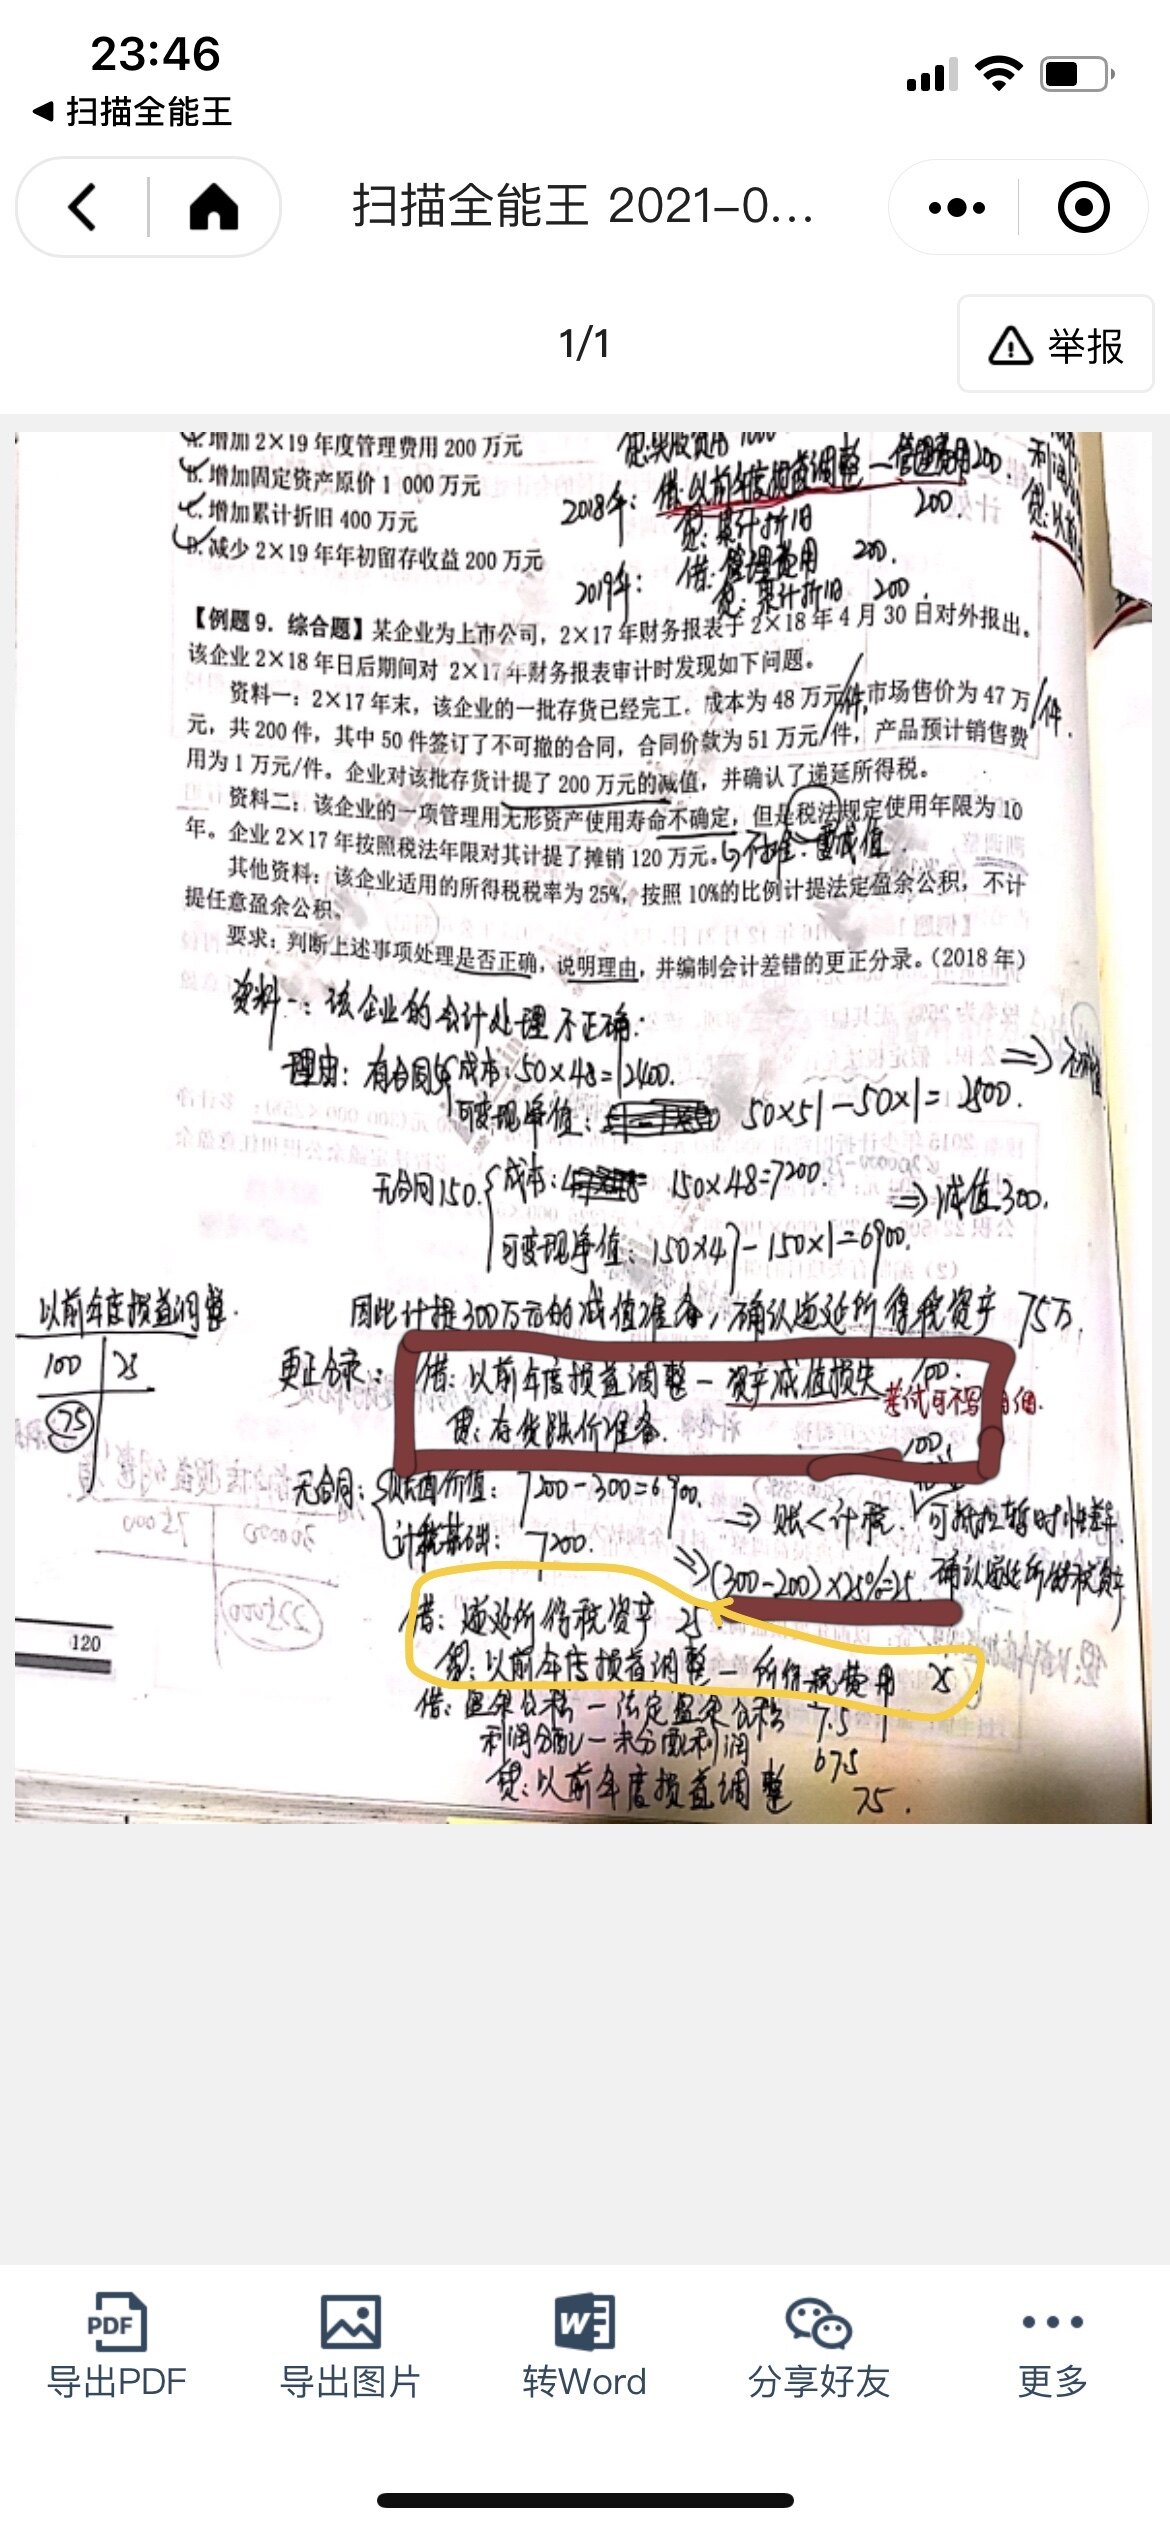 23:46
◀ 扫描全能王
扫描全能王 2021-0...
1/1
举报
A.增加 2×19 年度管理费用 200 万元
B.增加固定资产原价 1 000 万元
C.增加累计折旧 400 万元
D.减少 2×19 年年初留存收益 200 万元
2018年: 借:以前年度损益调整一管理费用200
贷:累计折旧 200.
2019年: 借:管理费用 200.
贷:累计折旧 200.
【例题 9．综合题】某企业为上市公司，2×17 年财务报表于 2×18 年 4 月 30 日对外报出。
该企业 2×18 年日后期间对 2×17 年财务报表审计时发现如下问题。
资料一：2×17 年末，该企业的一批存货已经完工，成本为 48 万元/件,市场售价为 47 万/件.
元，共 200 件，其中 50 件签订了不可撤的合同，合同价款为 51 万元/件，产品预计销售费
用为 1 万元/件。企业对该批存货计提了 200 万元的减值，并确认了递延所得税。
资料二：该企业的一项管理用无形资产使用寿命不确定，但是税法规定使用年限为 10
年。企业 2×17 年按照税法年限对其计提了摊销 120 万元。
其他资料：该企业适用的所得税税率为 25%，按照 10%的比例计提法定盈余公积，不计
提任意盈余公积。
要求：判断上述事项处理是否正确，说明理由，并编制会计差错的更正分录。（2018 年）
资料一：该企业的会计处理不正确:
理由: 有合同50 成本:50×48=2400.
可变现净值: 50×51-50×1=2500.
无合同150. 成本: 150×48=7200. ⇒减值300.
可变现净值: 150×47-150×1=6900.
因此计提300万元的减值准备,确认递延所得税资产75万.
以前年度损益调整.
100 25
75
更正分录: 借:以前年度损益调整-资产减值损失 100.
考试可不写明细.
贷:存货跌价准备. 100.
无合同: 账面价值: 7200-300=6900. ⇒账<计税. 可抵扣暂时性差异
计税基础: 7200. ⇒(300-200)×25%=25. 确认递延所得税资产
借: 递延所得税资产 25
贷:以前年度损益调整-所得税费用 25
借: 盈余公积-法定盈余公积 7.5
利润分配-未分配利润 67.5
贷:以前年度损益调整 75.
120
导出PDF
导出图片
转Word
分享好友
更多